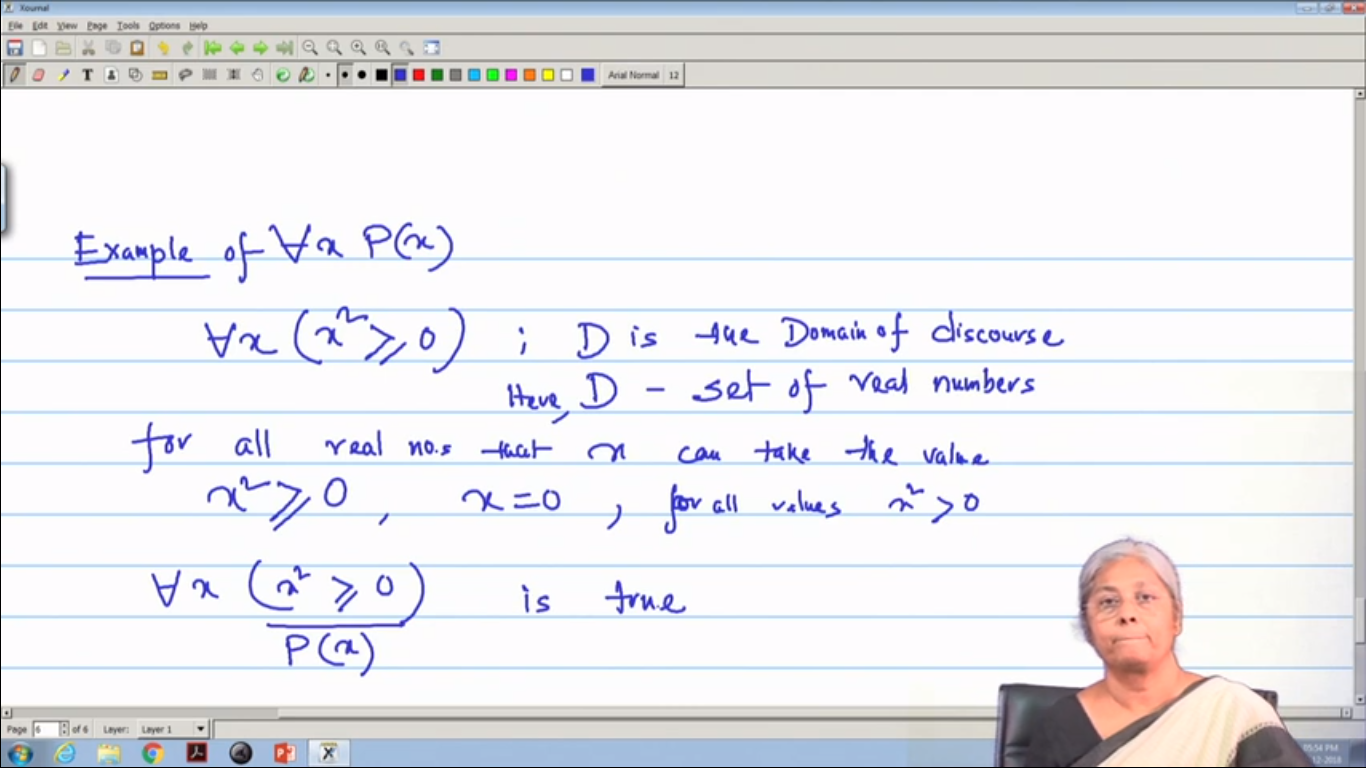 Xournal
File Edit View Page Tools Options Help
Arial Normal 12
Example of ∀x P(x)
∀x (x² ⩾ 0) ; D is the Domain of discourse
Here, D – set of real numbers
for all real no.s that x can take the value
x² ⩾ 0, x = 0, for all values x² > 0
∀x (x² ⩾ 0) is true
P(x)
Page 6 of 6 Layer: Layer 1
05:54 PM
12-2018